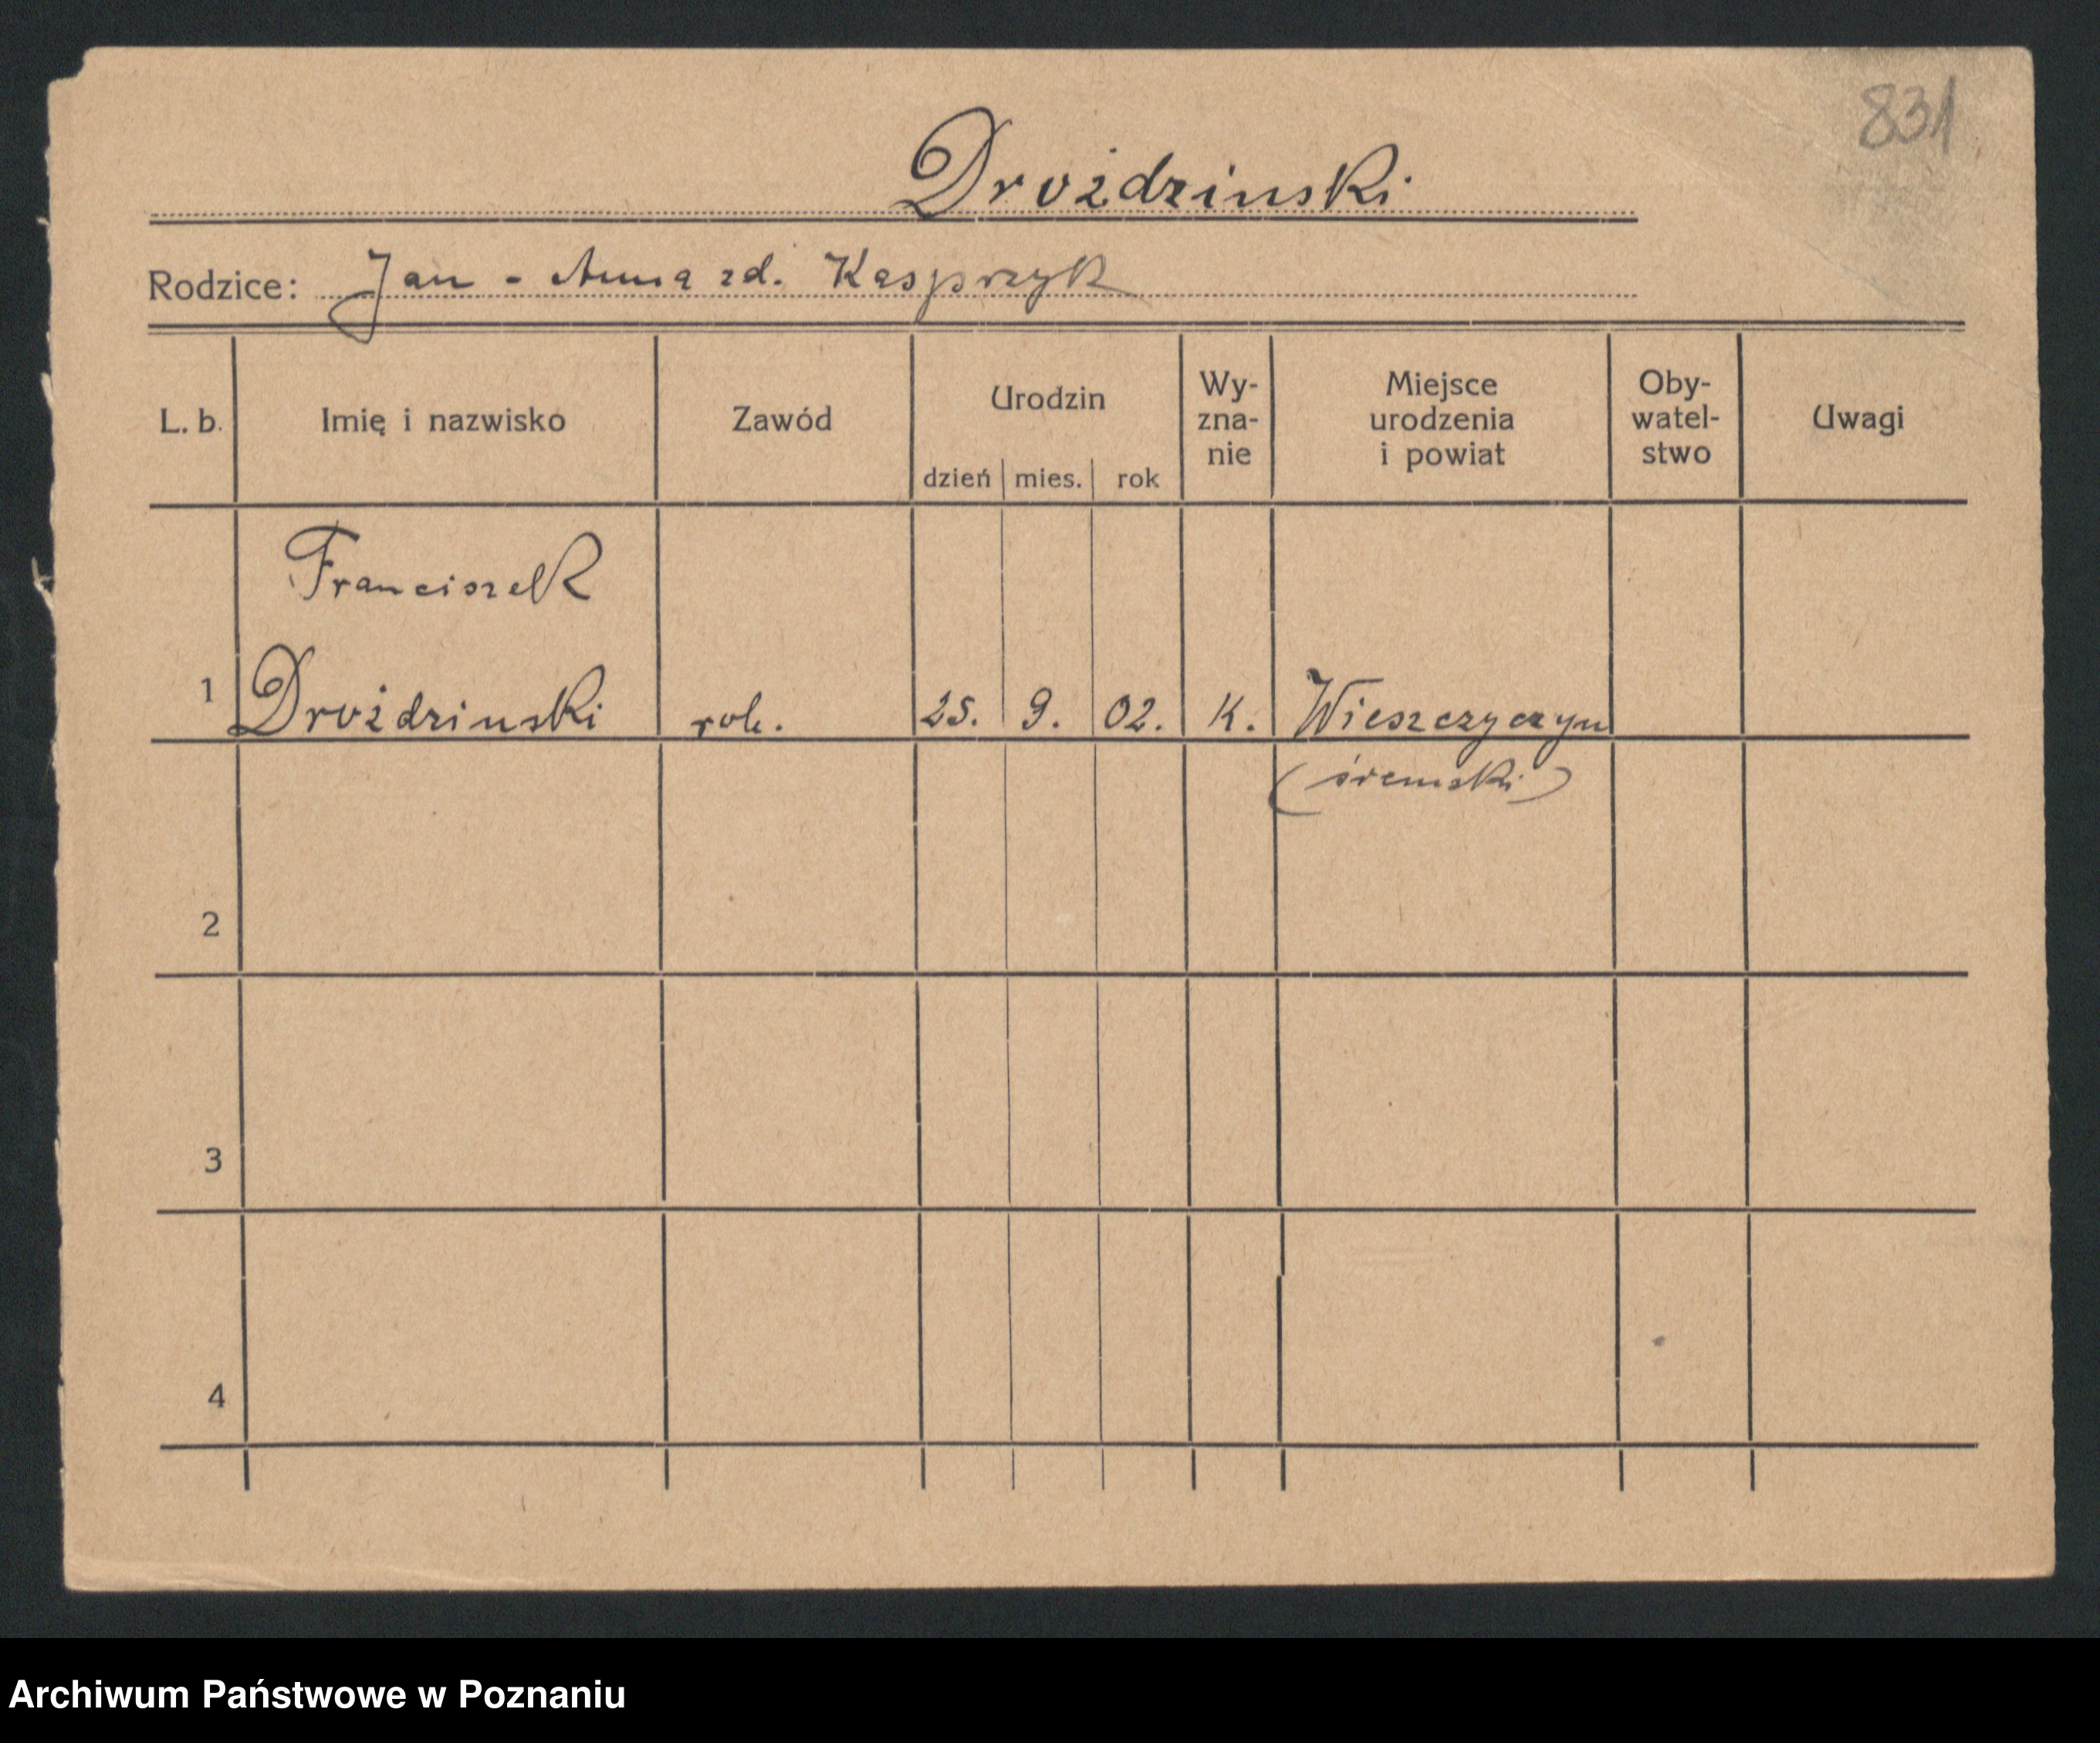 831
Drożdzinski
Rodzice: Jan - Anna zd. Kasprzyk
L. b. Imię i nazwisko Zawód Urodzin dzień mies. rok Wy-zna-nie Miejsce urodzenia i powiat Oby-watel-stwo Uwagi
Franciszek
1 Drożdzinski rob. 25. 9. 02. K. Wieszczyczyn
(śremski)
2
3
4
Archiwum Państwowe w Poznaniu